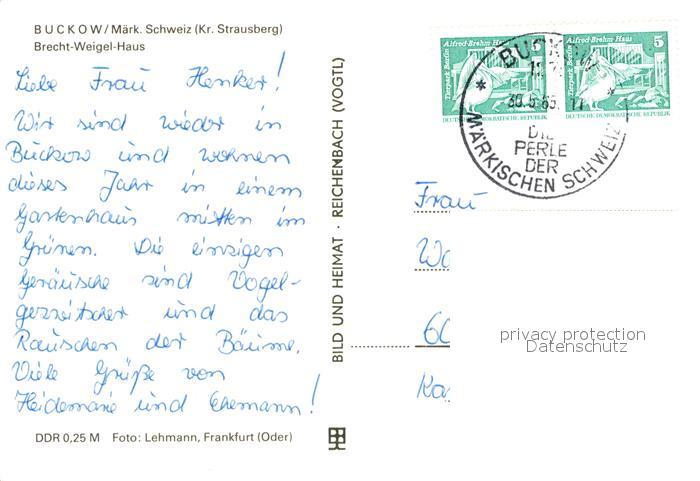 BUCKOW/Märk. Schweiz (Kr. Strausberg)
Brecht-Weigel-Haus
Liebe Frau Henker!
Wir sind wieder in
Buckow und wohnen
dieses Jahr in einem
Gartenhaus mitten im
Grünen. Die einzigen
Geräusche sind Vogel-
gezwitscher und das
Rauschen der Bäume.
Viele Grüße von
Heidemarie und Ehemann!
DDR 0,25 M Foto: Lehmann, Frankfurt (Oder)
BILD UND HEIMAT · REICHENBACH (VOGTL)
Tierpark Berlin
Alfred-Brehm-Haus
5
DEUTSCHE DEMOKRATISCHE REPUBLIK
Tierpark Berlin
Alfred-Brehm-Haus
5
DEUTSCHE DEMOKRATISCHE REPUBLIK
BUCKOW
DIE
PERLE
DER
MÄRKISCHEN SCHWEIZ
Frau
privacy protection
Datenschutz